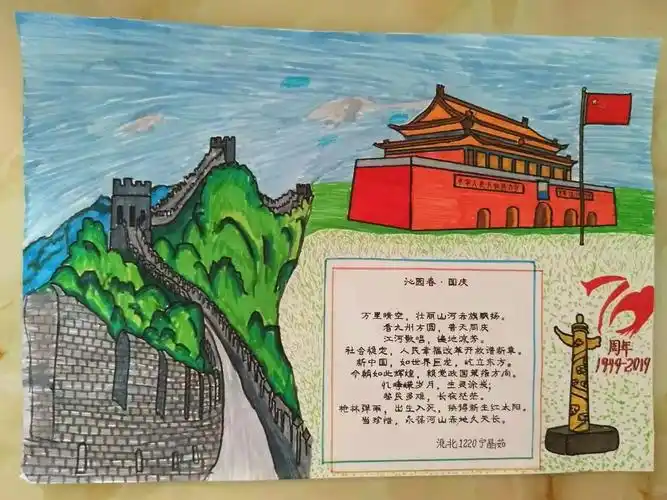 沁园春·国庆
万里晴空，壮丽山河赤旗飘扬。
看九州方圆，普天同庆
江河歌唱，遍地流芳。
社会稳定，人民幸福改革开放谱新章。
新中国，如世界巨龙，屹立东方。
今朝如此辉煌，赖党政国策指方向。
忆峥嵘岁月，生灵涂炭；
黎民多难，长夜茫茫。
枪林弹雨，出生入死，换得新生红太阳。
当珍惜，永葆河山赤地久天长。
淮北1220宁晶茹
70
周年
1949-2019